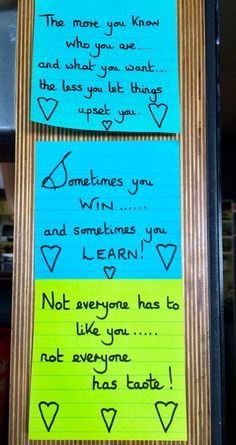 The more you know
who you are....
and what you want...
the less you let things
upset you.
Sometimes you
WIN......
and sometimes you
LEARN!
Not everyone has to
like you.....
not everyone
has taste!